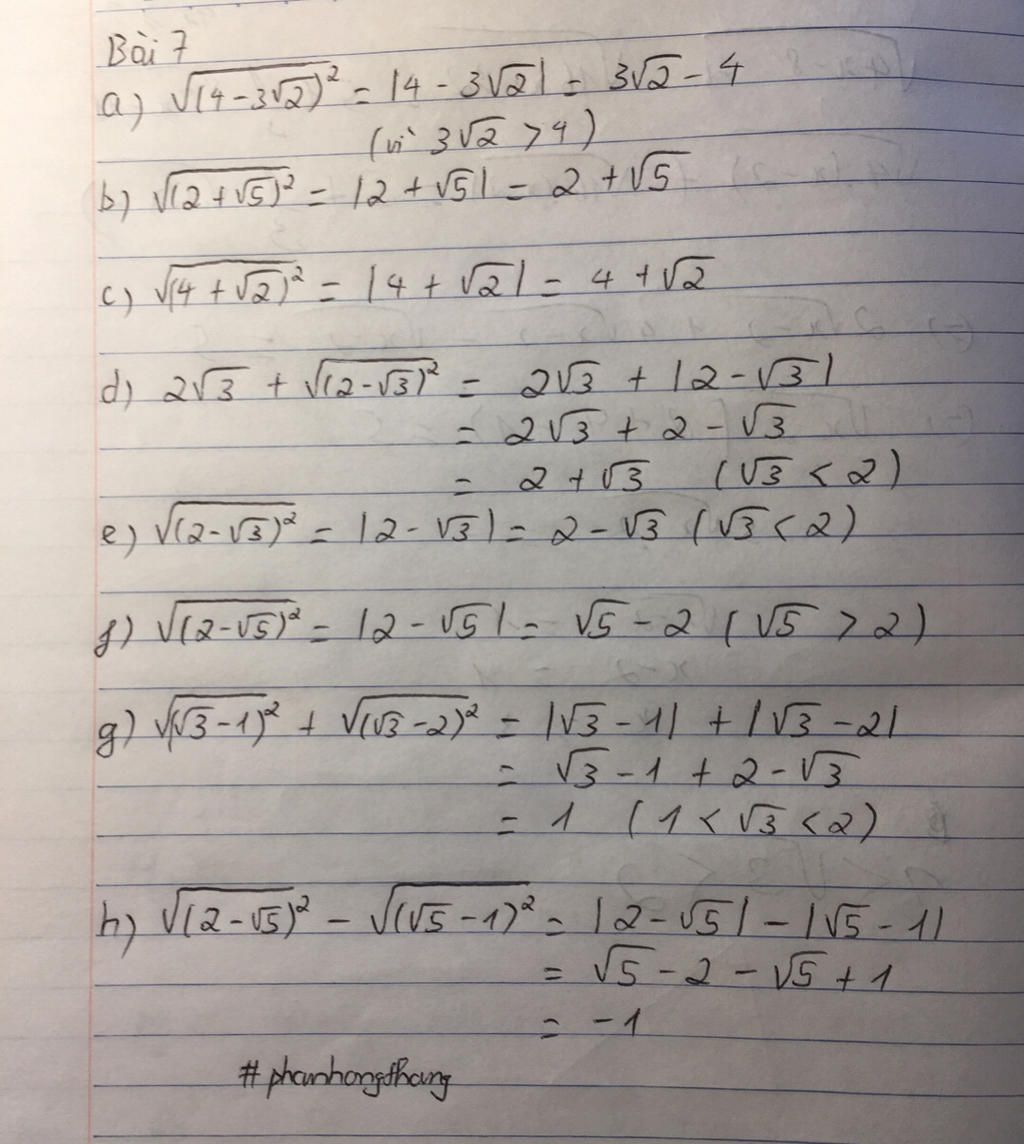 Bài 7
a) √(4-3√2)² = |4 - 3√2| = 3√2 - 4
(vì 3√2 > 4)
b) √(2+√5)² = |2 + √5| = 2 + √5
c) √(4+√2)² = |4 + √2| = 4 + √2
d) 2√3 + √(2-√3)² = 2√3 + |2 - √3|
= 2√3 + 2 - √3
= 2 + √3 (√3 < 2)
e) √(2-√3)² = |2 - √3| = 2 - √3 (√3 < 2)
f) √(2-√5)² = |2 - √5| = √5 - 2 (√5 > 2)
g) √(√3-1)² + √(√3-2)² = |√3 - 1| + |√3 - 2|
= √3 - 1 + 2 - √3
= 1 (1 < √3 < 2)
h) √(2-√5)² - √(√5-1)² = |2 - √5| - |√5 - 1|
= √5 - 2 - √5 + 1
= -1
# phanhongthang